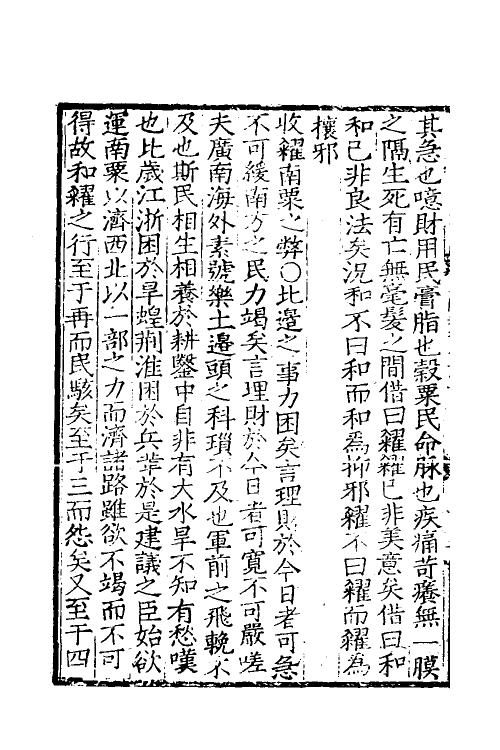 其急也噫財用民膏脂也穀粟民命脉也疾痛苛癢無一膜
之隔生死有亡無毫髮之間借曰糴糴已非美意矣借曰和
和已非良法矣況和不曰和而和爲抑邪糴不曰糴而糴爲
攘邪
收糴南粟之弊○比邉之事力困矣言理財於今日者可急
不可緩南方之民力竭矣言理財於今日者可寛不可嚴嗟
夫廣南海外素號樂土邉頭之科瑣不及也軍前之飛輓不
及也斯民相生相養於耕鑿中自非有大水旱不知有愁嘆
也比歳江浙困於旱蝗荆淮困於兵革於是建議之臣始欲
運南粟以濟西北以一部之力而濟諸路雖欲不竭而不可
得故和糴之行至于再而民駭矣至于三而怨矣又至于四